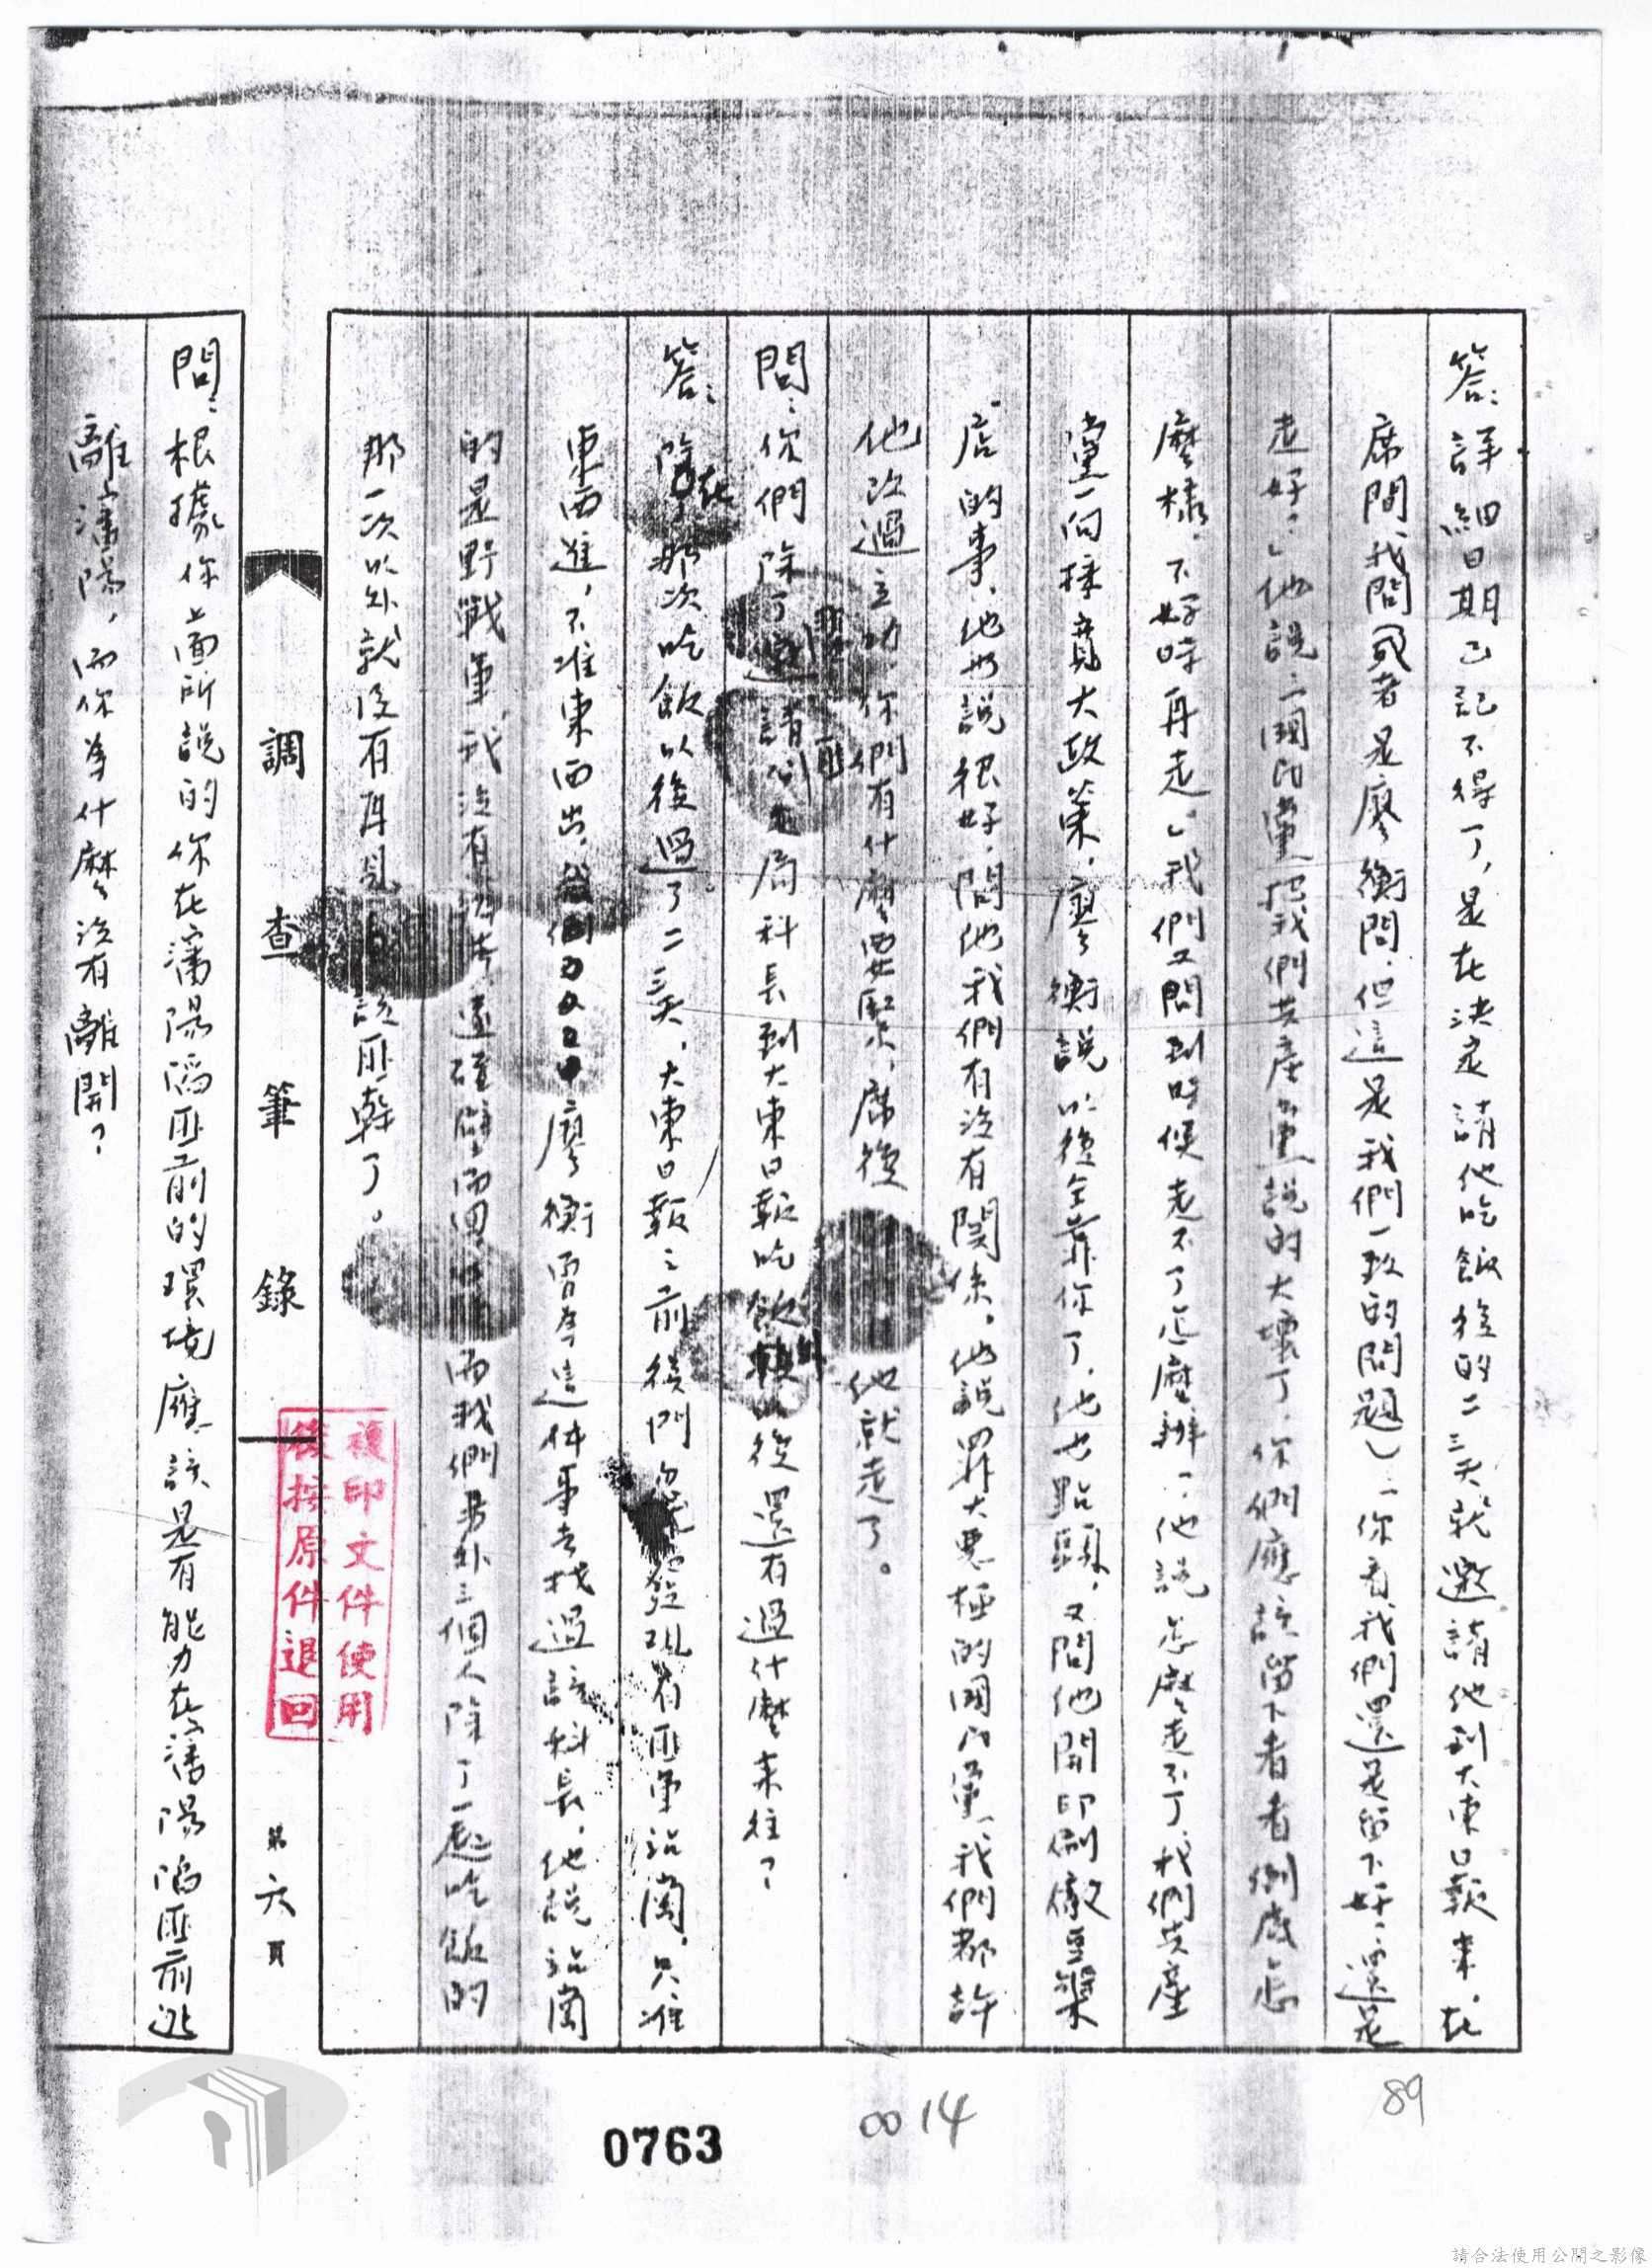 答：詳細日期已記不得了，是在決定請他吃飯後的二三天就邀請他到大東日報來，在
席間我問(或者是廖衡問，但這是我們一致的問題)：「你看我們還是留下好，還是
走好？」他說：「國民黨把我們共產黨說的太壞了，你們應該留下看看倒底怎
麼樣，不好時再走。」我們又問到時候走不了怎麼辦？他說怎麼走不了，我們共產
黨一向採寬大政策，廖衡說以後全靠你了，他也點頭，又問他開印刷廠豆漿
店的事，他也說很好，問他我們有沒有關係，他說罪大惡極的國民黨，我們都許
他改過立功，你們有什麼要緊，席後他就走了。
問：你們除了邀請局科長到大東日報吃飯以後還有過什麼來往？
答：除了那次吃飯以後過了二三天，大東日報之前後門忽然發現有匪軍站崗，只准
東西進，不准東西出，廖衡曾為這件事去找過該科長，他說站崗
的是野戰軍，我沒有而我們另外三個人除了一起吃飯的
那一次以外就沒有再見該匪幹了。
調查筆錄
第六頁
問：根據你上面所說的你在瀋陽陷匪前的環境應該是有能力在瀋陽陷匪前逃
離瀋陽，而你為什麼沒有離開？
複印文件使用
後按原件退回
0763
0014
89
請合法使用公開之影像